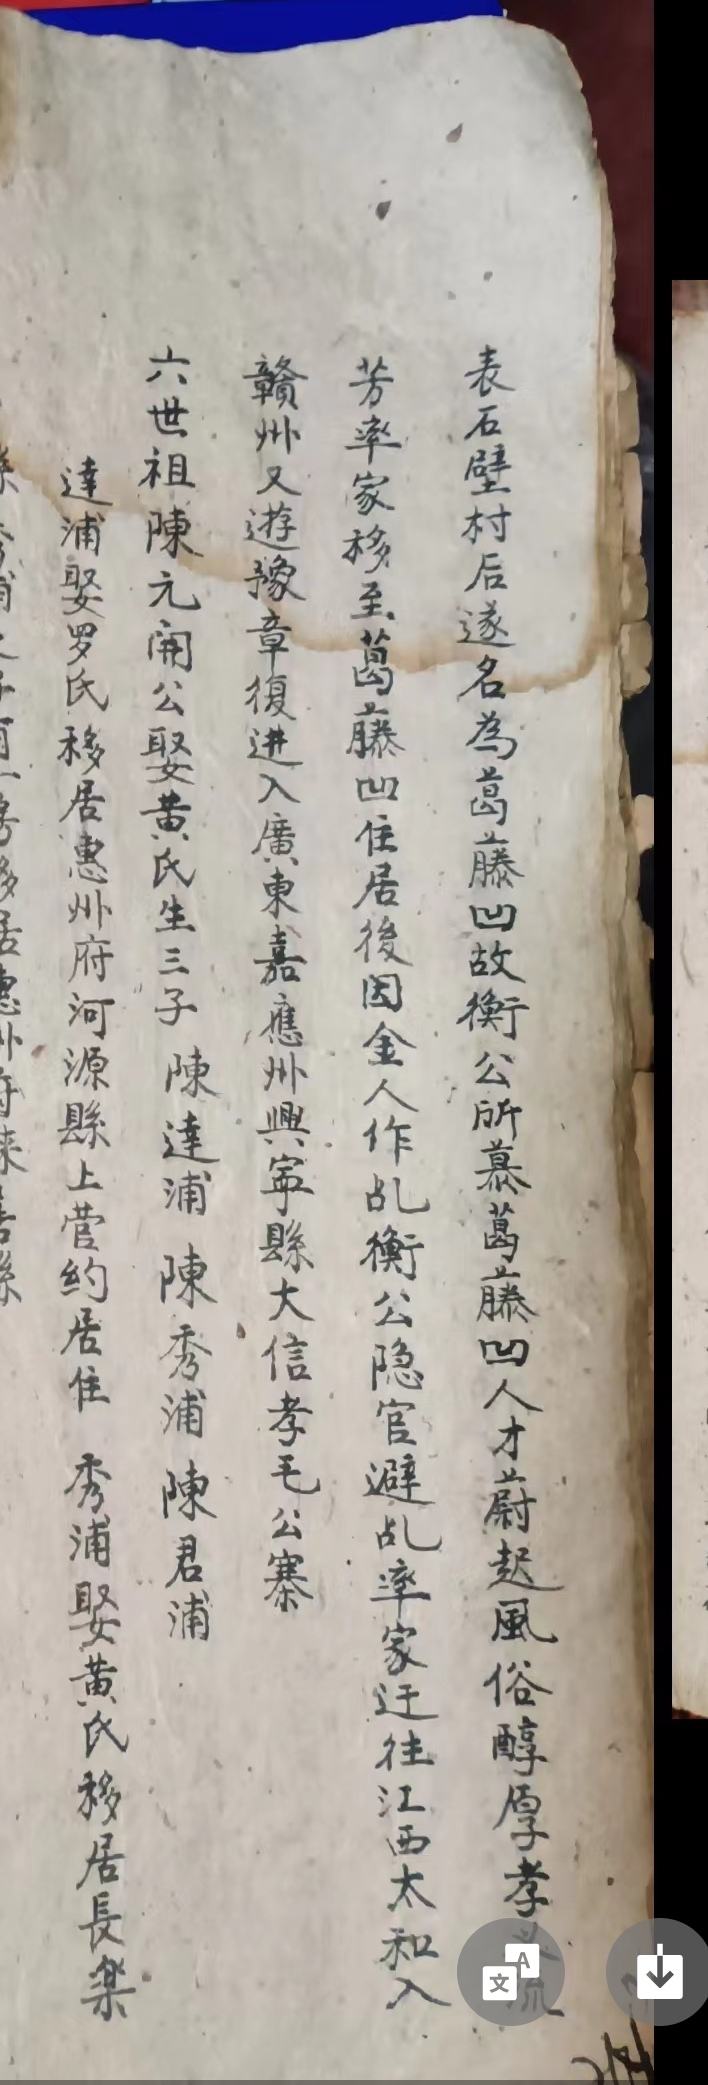 表石壁村后遂名為葛藤凹故衡公所慕葛藤凹人才蔚起風俗醇厚孝流
芳率家移至葛藤凹住居後因金人作乱衡公隐官避乱率家迁往江西太和入
贛州又遊豫章復进入廣東嘉應州興寧縣大信孝毛公寨
六世祖陳元開公娶黄氏生三子 陳達浦 陳秀浦 陳君浦
達浦娶罗氏移居惠州府河源縣上营约居住 秀浦娶黄氏移居長楽
房移居惠州府